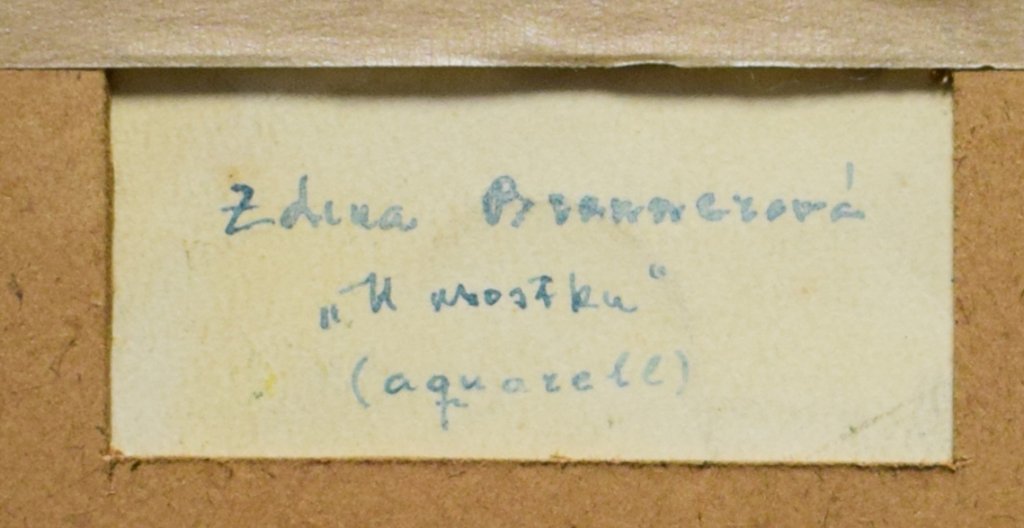 Zdena Braunerová
„U mostku“
(aquarell)